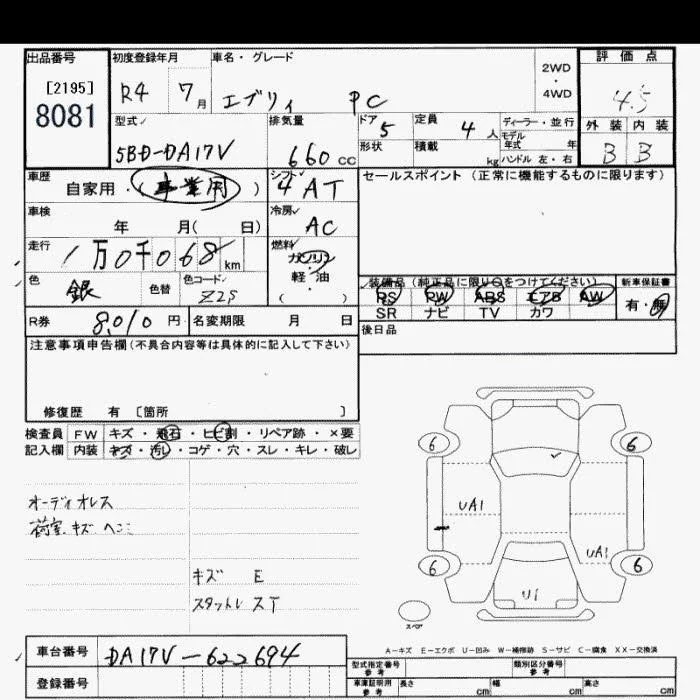 出品番号
[2195]
8081
初度登録年月
R4 7月
車名・グレード
エブリィ PC
2WD
・
4WD
評価点
4.5
外装 内装
B B
型式
5BD-DA17V
排気量
660cc
ドア 5
形状
定員 4人
積載 kg
ディーラー・並行
モデル年式 年
ハンドル 左・右
車歴
自家用・(事業用)
シフト
4AT
セールスポイント(正常に機能するものに限ります)
車検
年 月( 日)
冷房
AC
走行
1万0千068km
燃料
ガソリン
軽・油
( )
色
銀
色替
色コード
Z2S
装備品(純正品に限り○をつけてください)
PS PW ABS エアB AW
SR ナビ TV カワ
新車保証書
有・無
R券 8,010円
名変期限 月 日
後日品
注意事項申告欄(不具合内容等は具体的に記入して下さい)
修復歴 有 [箇所 ]
検査員 FW キズ・飛石・ヒビ割・リペア跡・×要
記入欄 内装 キズ・汚レ・コゲ・穴・スレ・キレ・破レ
オーディオレス
荷室キズ ヘコミ
キズ E
スタットレスT
6 6
UA1
UA1
6 6
U1
スペア
A-キズ E-エクボ U-凹み W-補修跡 S-サビ C-腐食 XX-交換済
車台番号 DA17V-622694
登録番号
型式指定番号 参考
類別区分番号 参考
車庫証明用 参考 長さ cm 幅 cm 高さ cm